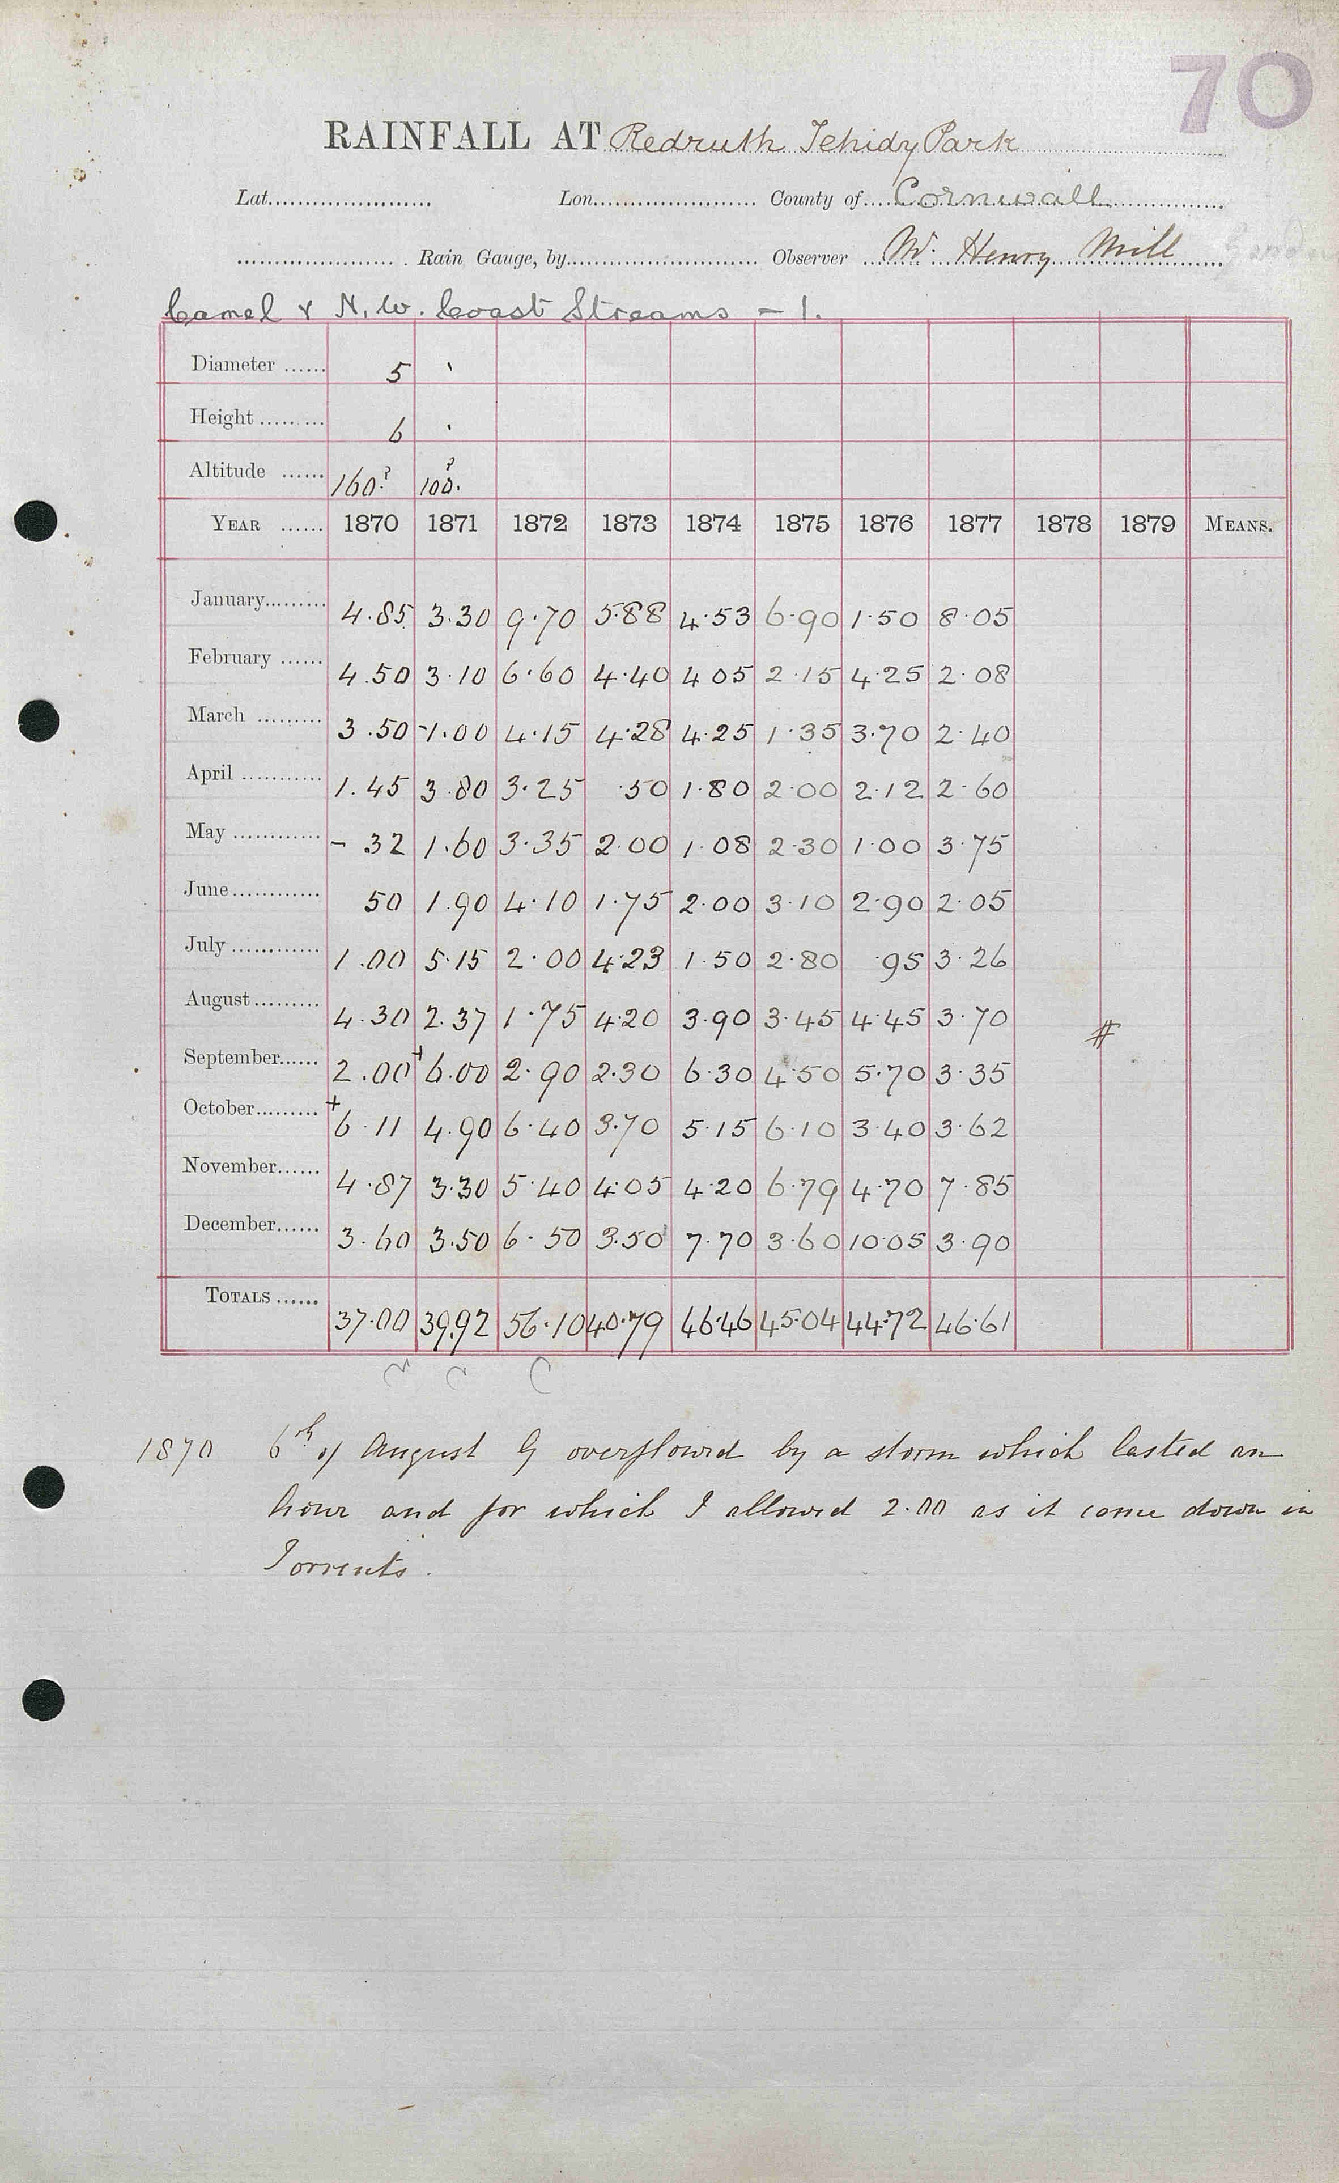 70
RAINFALL AT Redruth Tehidy Park
Lat. Lon. County of Cornwall
Rain Gauge, by Observer Mr. Henry Mill
Camel & N.W. Coast Streams - 1.
Diameter 5 '
Height 6 '
Altitude 160.? 100.?
YEAR 1870 1871 1872 1873 1874 1875 1876 1877 1878 1879 MEANS.
January 4.85 3.30 9.70 5.88 4.53 6.90 1.50 8.05
February 4.50 3.10 6.60 4.40 4 05 2.15 4.25 2.08
March 3.50 1.00 4.15 4.28 4.25 1.35 3.70 2.40
April 1.45 3.80 3.25 .50 1.80 2.00 2.12 2.60
May - .32 1.60 3.35 2.00 1.08 2.30 1.00 3.75
June 50 1.90 4.10 1.75 2.00 3.10 2.90 2.05
July 1.00 5.15 2.00 4.23 1.50 2.80 .95 3.26
August 4.30 2.37 1.75 4.20 3.90 3.45 4.45 3.70 #
September 2.00 + 6.00 2.90 2.30 6.30 4.50 5.70 3.35
October + 6.11 4.90 6.40 3.70 5.15 6.10 3.40 3.62
November 4.87 3.30 5.40 4.05 4.20 6.79 4.70 7.85
December 3.60 3.50 6.50 3.50 7.70 3.60 10.05 3.90
TOTALS 37.00 39.92 56.10 40.79 46.46 45.04 44.72 46.61
1870 6th of August G overflowed by a storm which lasted an
hour and for which I allowed 2.00 as it came down in
Torrents.